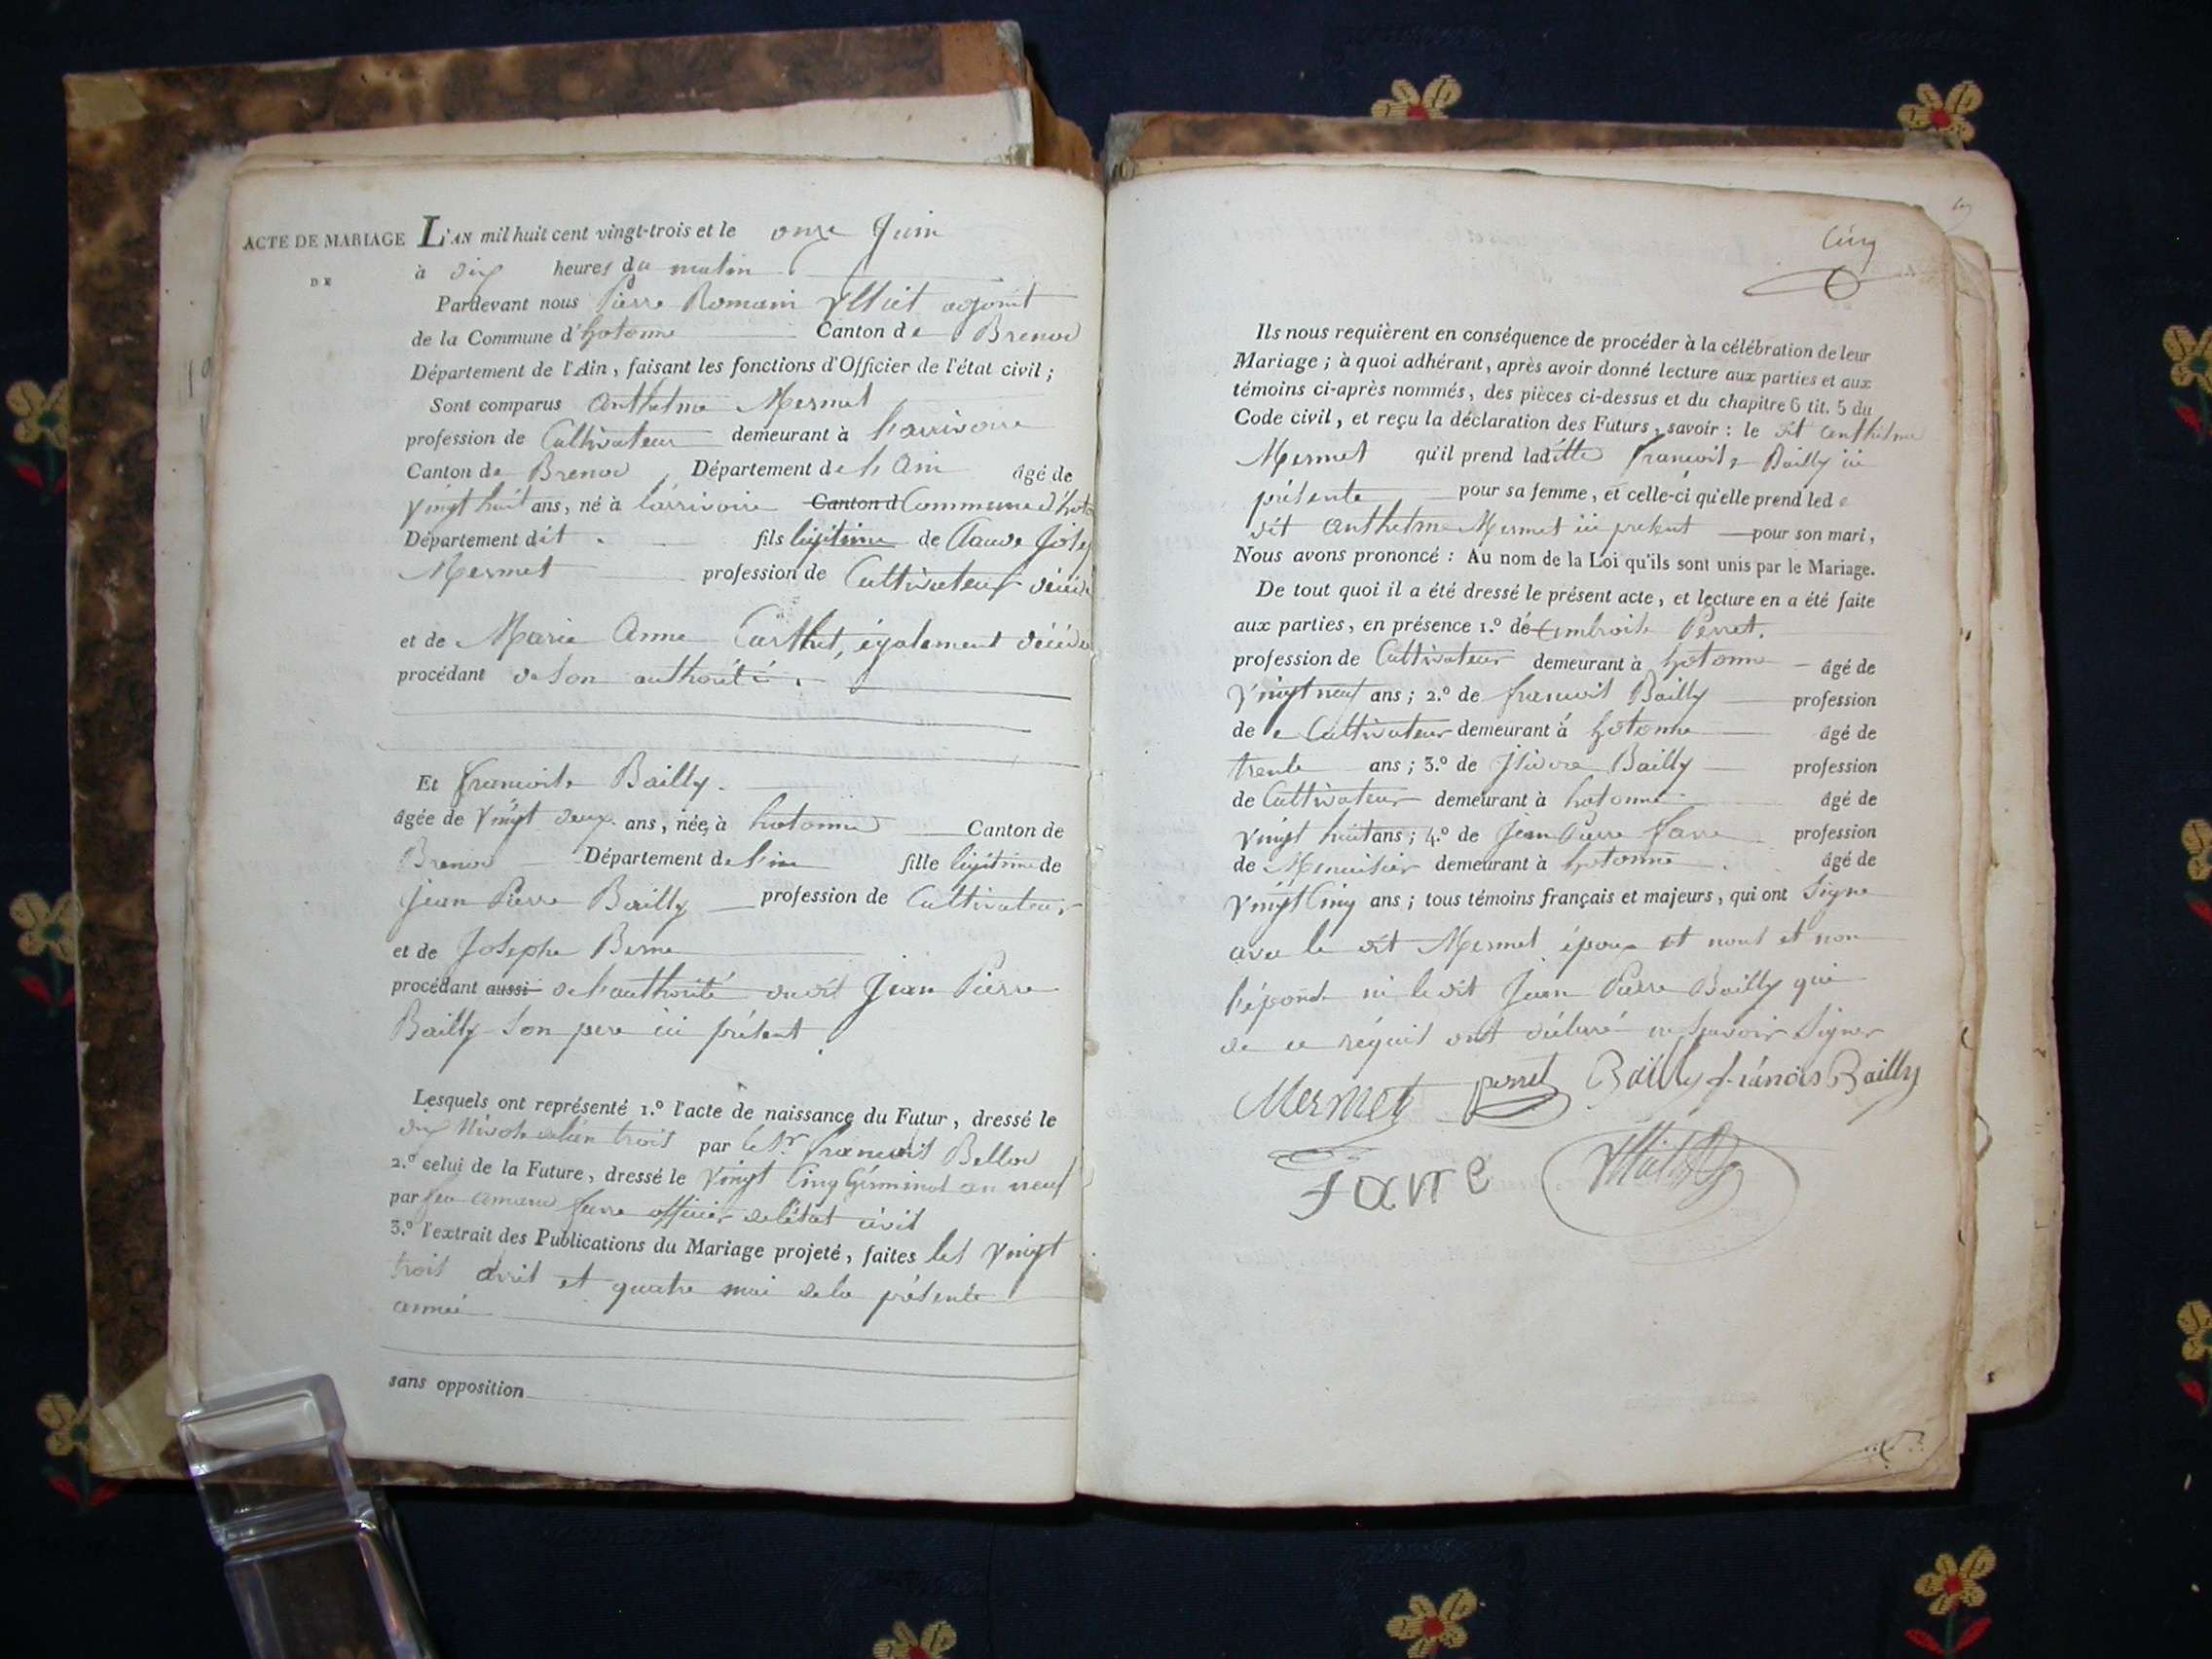 ACTE DE MARIAGE
DE
L'AN mil huit cent vingt-trois et le onze Juin
à dix heures du matin
Pardevant nous Pierre Romain adjoint
de la Commune d'hotonne Canton de Brenod
Département de l'Ain, faisant les fonctions d'Officier de l'état civil;
Sont comparus anthelme Mermet
profession de Cultivateur demeurant à larrivoire
Canton de Brenod Département de l'Ain âgé de
vingt huit ans, né à larrivoire Canton d Commune d'hoto
Département dit fils légitime de Claude Josep
Mermet profession de Cultivateur décédé
et de Marie Anne Carthet, également décédée
procédant de son authorité.
Et francoise Bailly.
âgée de vingt deux ans, née à hotonne Canton de
Brenod Département de l'ain fille légitime de
jean Pierre Bailly profession de Cultivateur
et de Josephe Berne
procédant aussi de l'authorité dudit Jean Pierre
Bailly son pere ici présent
Lesquels ont représenté 1.º l'acte de naissance du Futur, dressé le
dix Nivose de l'an trois par le Sr. francois Bellod
2.º celui de la Future, dressé le vingt Cinq Germinal an neuf
par feu amand favre officier de l'état civil
3.º l'extrait des Publications du Mariage projeté, faites les vingt
trois avril et quatre mai de la présente
année
sans opposition
Cinq
Ils nous requièrent en conséquence de procéder à la célébration de leur
Mariage; à quoi adhérant, après avoir donné lecture aux parties et aux
témoins ci-après nommés, des pièces ci-dessus et du chapitre 6 tit. 5 du
Code civil, et reçu la déclaration des Futurs, savoir: le dit anthelme
Mermet qu'il prend laditte francoise Bailly ici
présente pour sa femme, et celle-ci qu'elle prend led
dit anthelme Mermet ici présent pour son mari,
Nous avons prononcé: Au nom de la Loi qu'ils sont unis par le Mariage.
De tout quoi il a été dressé le présent acte, et lecture en a été faite
aux parties, en présence 1.º de ambroise Perret.
profession de Cultivateur demeurant à hotonne âgé de
vingt neuf ans; 2.º de francois Bailly profession
de Cultivateur demeurant à hotonne âgé de
trente ans; 3.º de Jsidore Bailly profession
de Cultivateur demeurant à hotonne âgé de
vingt huit ans; 4.º de Jean Pierre favre profession
de Menuisier demeurant à hotonne. âgé de
vingt Cinq ans; tous témoins français et majeurs, qui ont signé
avec le dit Mermet époux et nous et non
l'épouse ni le dit Jean Pierre Bailly qui
de ce réquis ont déclaré ne savoir signer
Mermet perret Bailly francois Bailly
favre